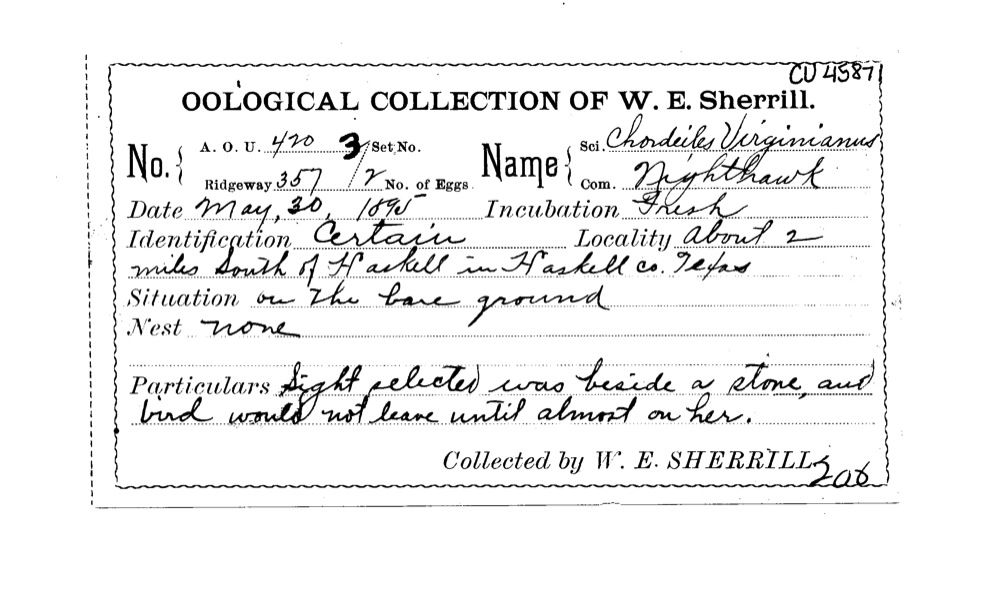 CU 45871
OOLOGICAL COLLECTION OF W. E. Sherrill.
No. { A. O. U. 420 3/ Set No. Name { Sci. Chordeiles Virginianus
Ridgeway 357 /2 No. of Eggs Com. Nighthawk
Date May, 30, 1895 Incubation Fresh
Identification Certain Locality About 2
miles South of Haskell in Haskell co. Texas
Situation on The bare ground
Nest none
Particulars Sight selected was beside a stone, and
bird would not leave until almost on her.
Collected by W. E. SHERRILL
206